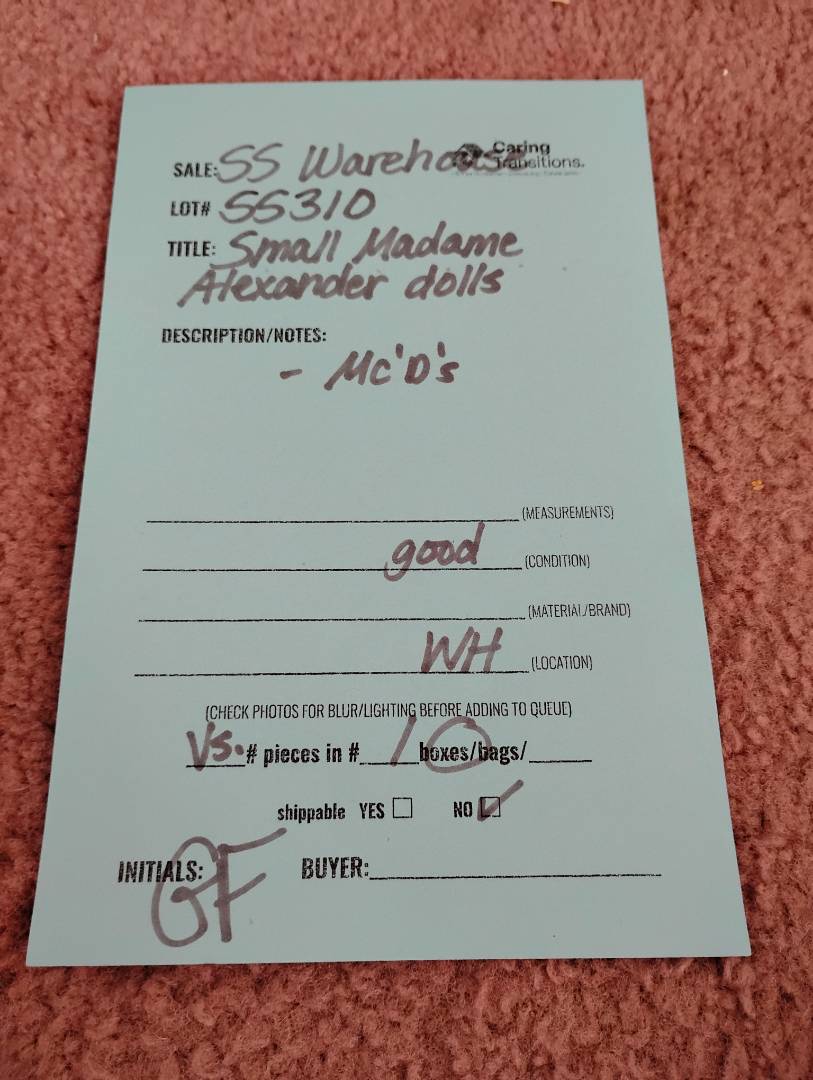 Caring
Transitions.
SALE: SS Warehouse
LOT# SS310
TITLE: Small Madame
Alexander dolls
DESCRIPTION/NOTES:
- Mc'D's
(MEASUREMENTS)
good (CONDITION)
(MATERIAL/BRAND)
WH (LOCATION)
(CHECK PHOTOS FOR BLUR/LIGHTING BEFORE ADDING TO QUEUE)
VS. # pieces in # 1 boxes/bags/
shippable YES NO
INITIALS: GF BUYER: